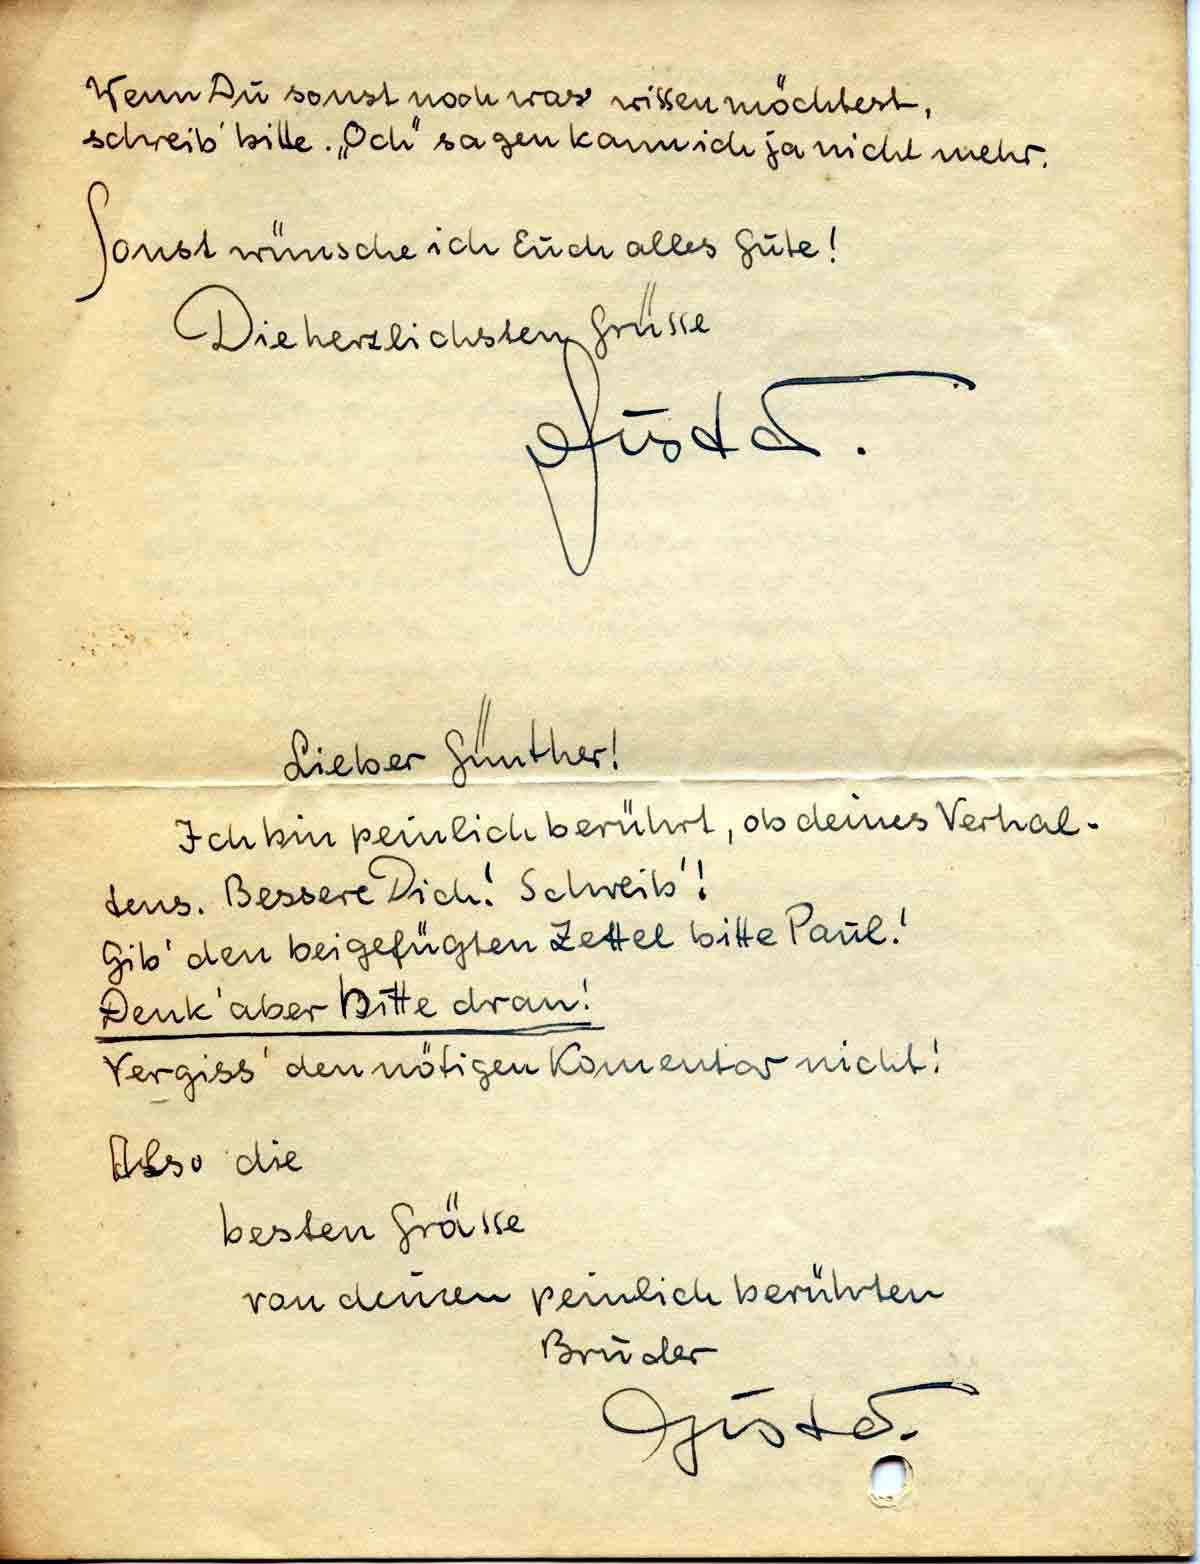 Wenn Du sonst noch was wissen möchtest,
schreib' bitte. „Och" sagen kann ich ja nicht mehr.
Sonst wünsche ich Euch alles Gute!
Die herzlichsten Grüsse
Gustav.
Lieber Günther!
Ich bin peinlich berührt, ob deines Verhal-
tens. Bessere Dich! Schreib'!
Gib' den beigefügten Zettel bitte Paul!
Denk' aber bitte dran!
Vergiss' den nötigen Komentar nicht!
Also die
besten Grüsse
von deinen peinlich berührten
Bruder
Gustav.